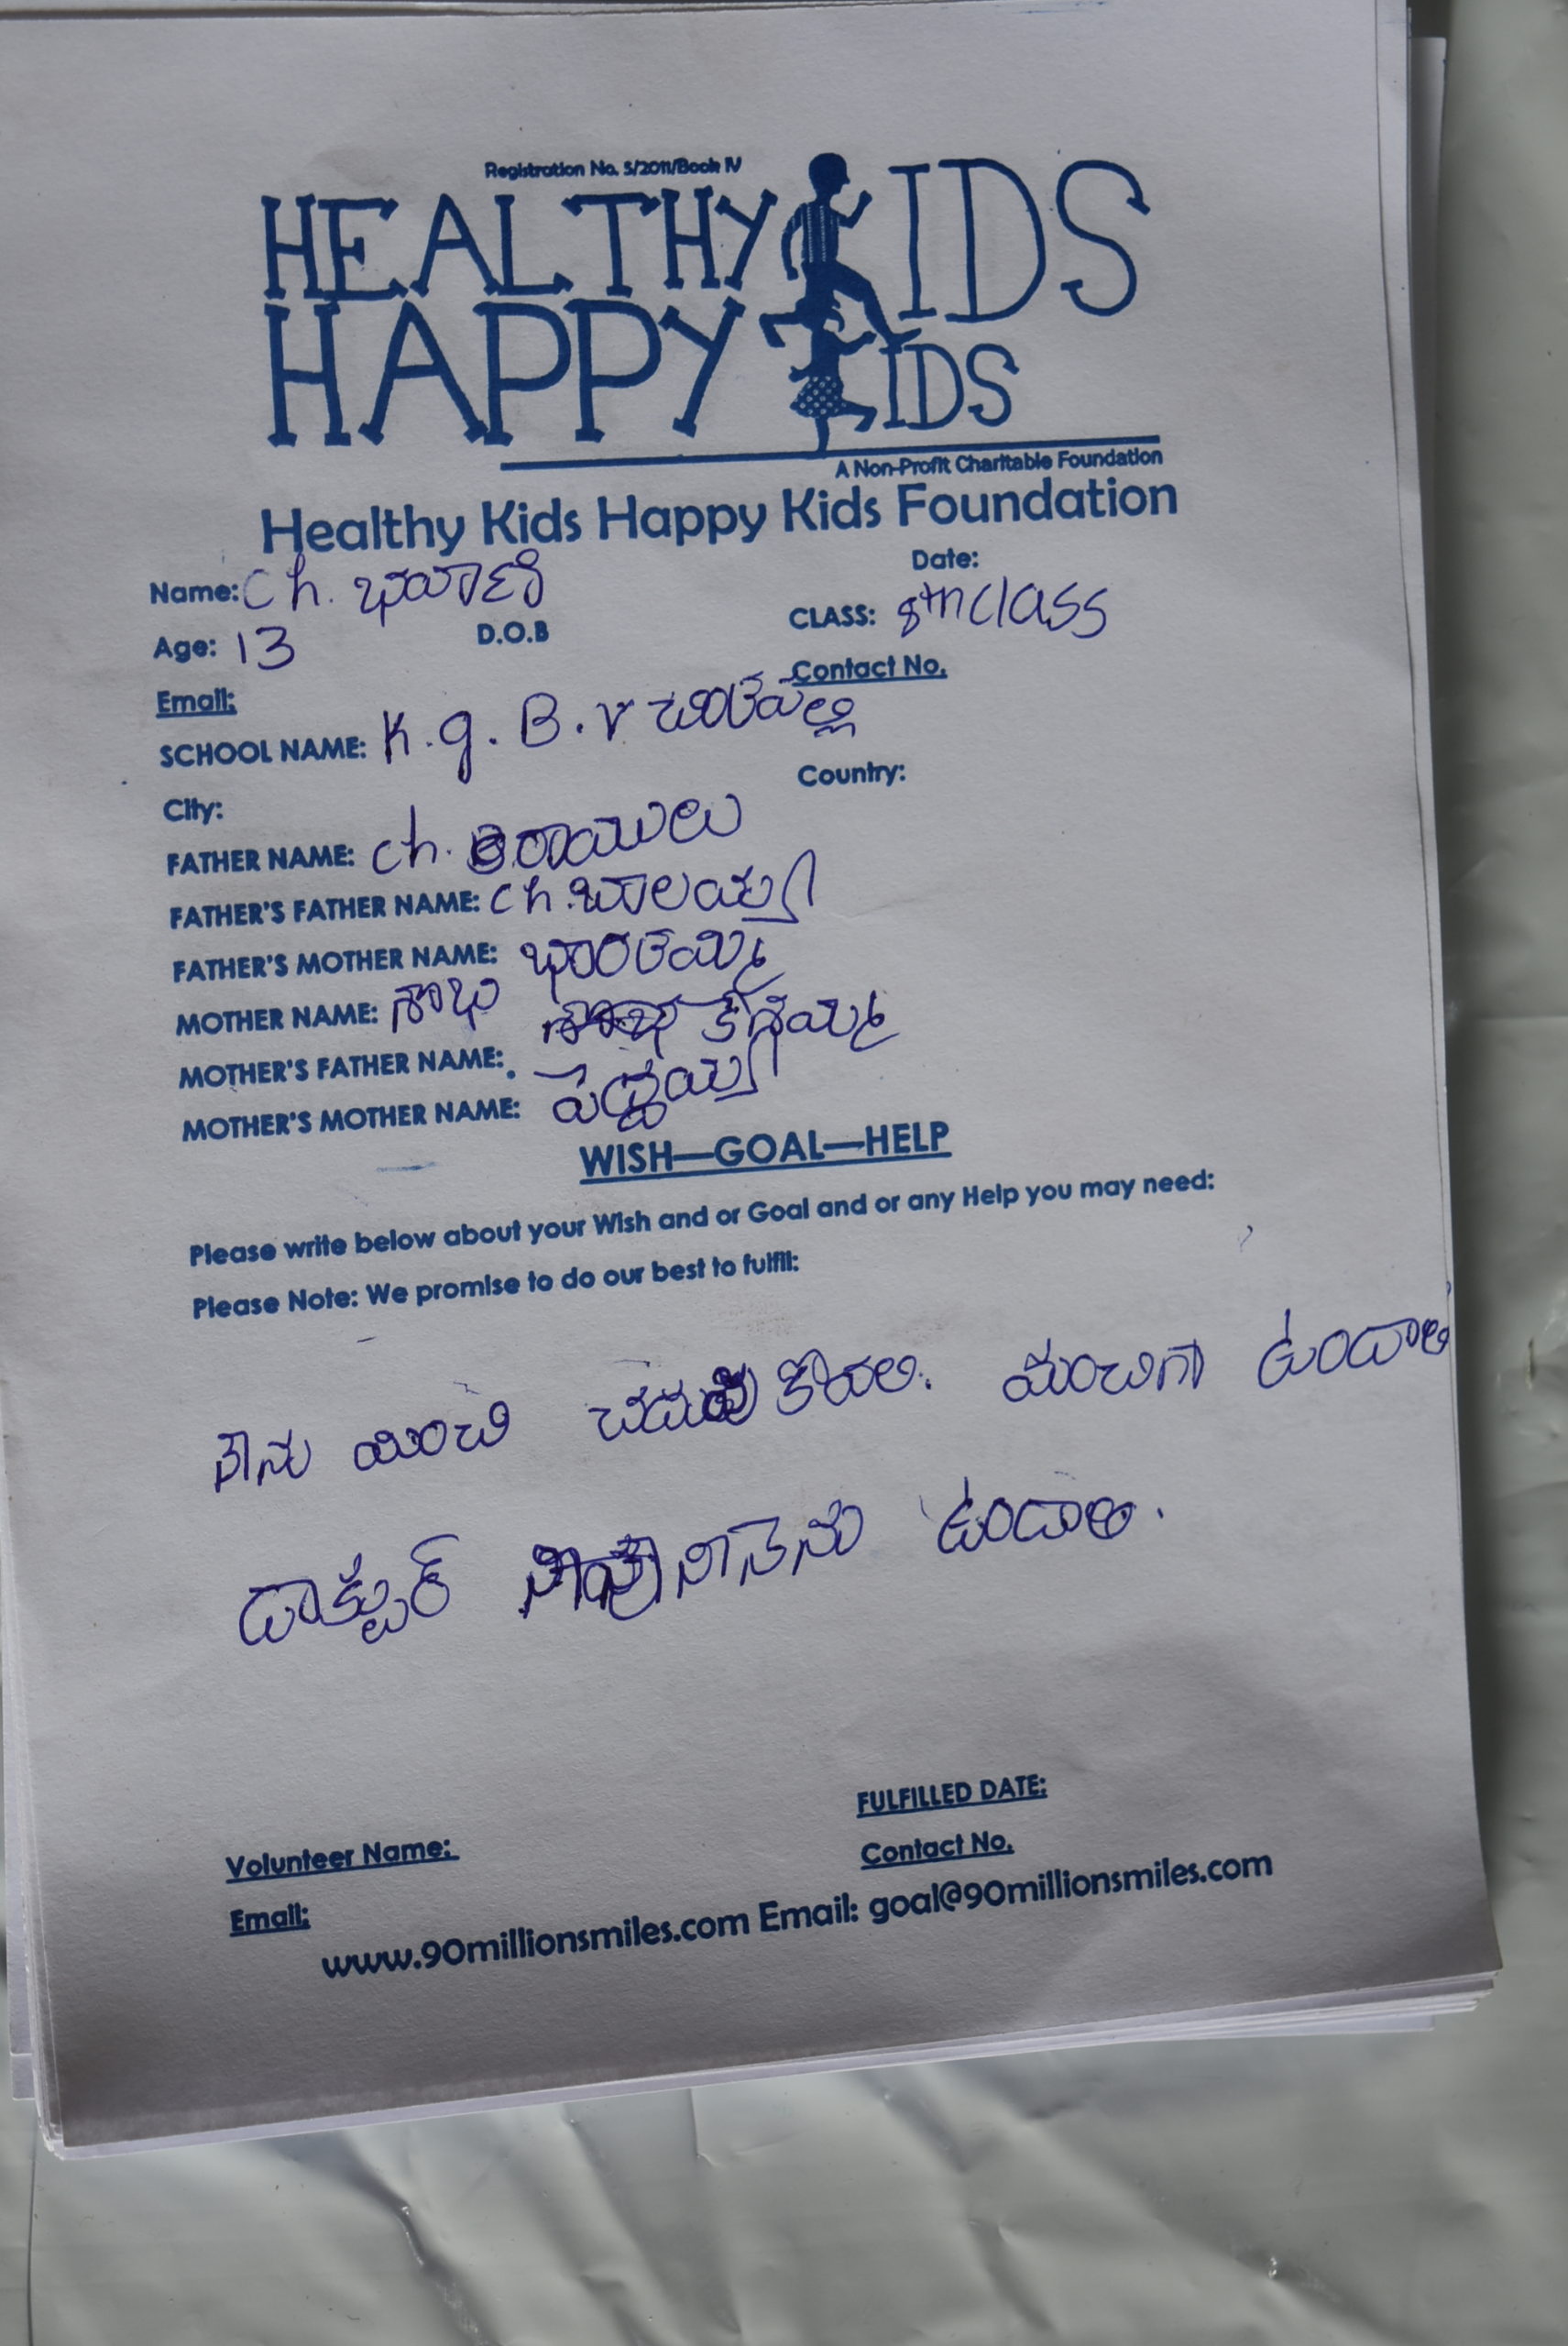 Registration No. 5/2011/Book IV
HEALTHY KIDS
HAPPY KIDS
A Non-Profit Charitable Foundation
Healthy Kids Happy Kids Foundation
Date:
Name: Ch. భవాణి
CLASS: 8th class
Age: 13 D.O.B
Contact No.
Email:
SCHOOL NAME: K.g.B.v చింతపల్లి
Country:
City:
FATHER NAME: Ch. రాములు
FATHER'S FATHER NAME: Ch. బాలయ్య
FATHER'S MOTHER NAME: భారతమ్మ
MOTHER NAME: శోభ
MOTHER'S FATHER NAME:
MOTHER'S MOTHER NAME: పెద్దయ్య
WISH—GOAL—HELP
Please write below about your Wish and or Goal and or any Help you may need:
Please Note: We promise to do our best to fulfil:
నేను మంచి మంచిగా ఉండాలి
డాక్టర్ ఉండాలి.
FULFILLED DATE:
Volunteer Name:
Contact No.
Email:
www.90millionsmiles.com Email: goal@90millionsmiles.com